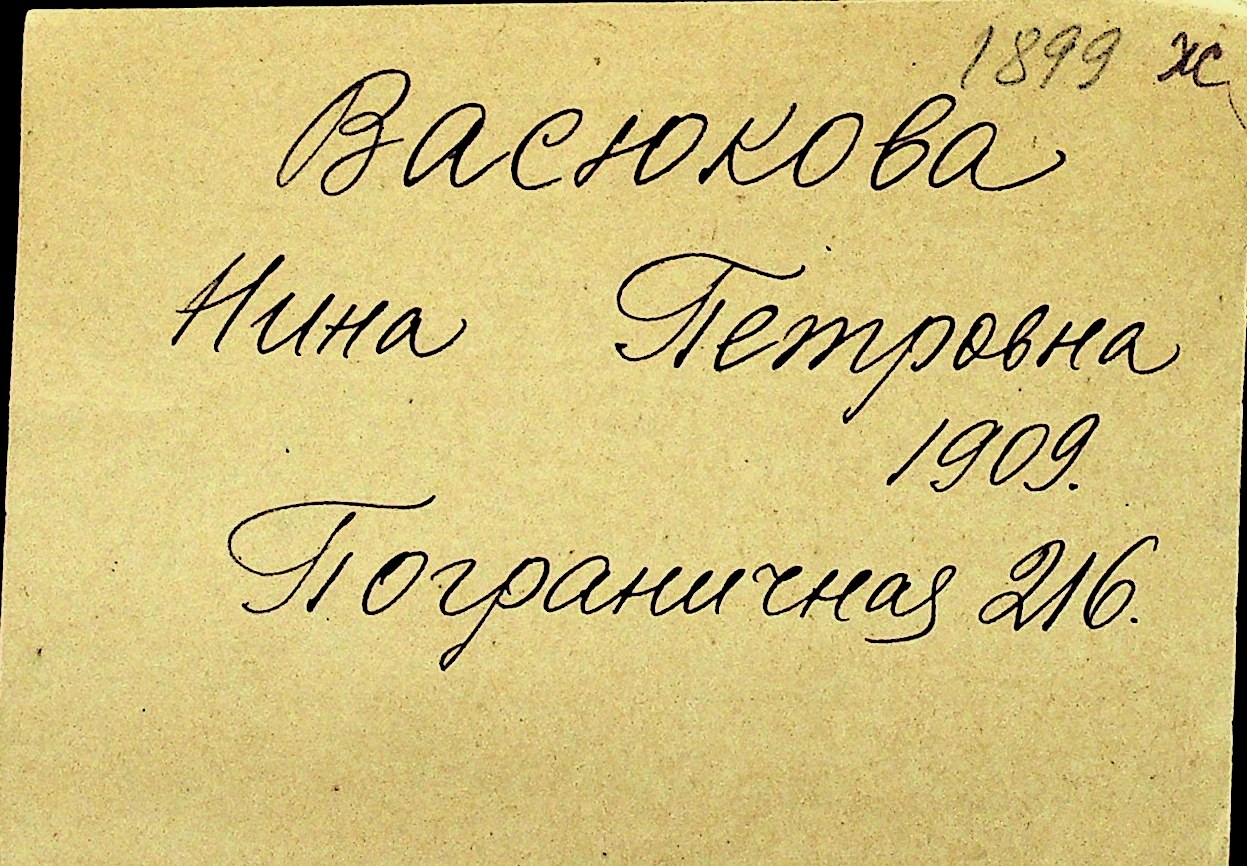 1899 ж
Васюкова
Нина Петровна
1909.
Пограничная 216.